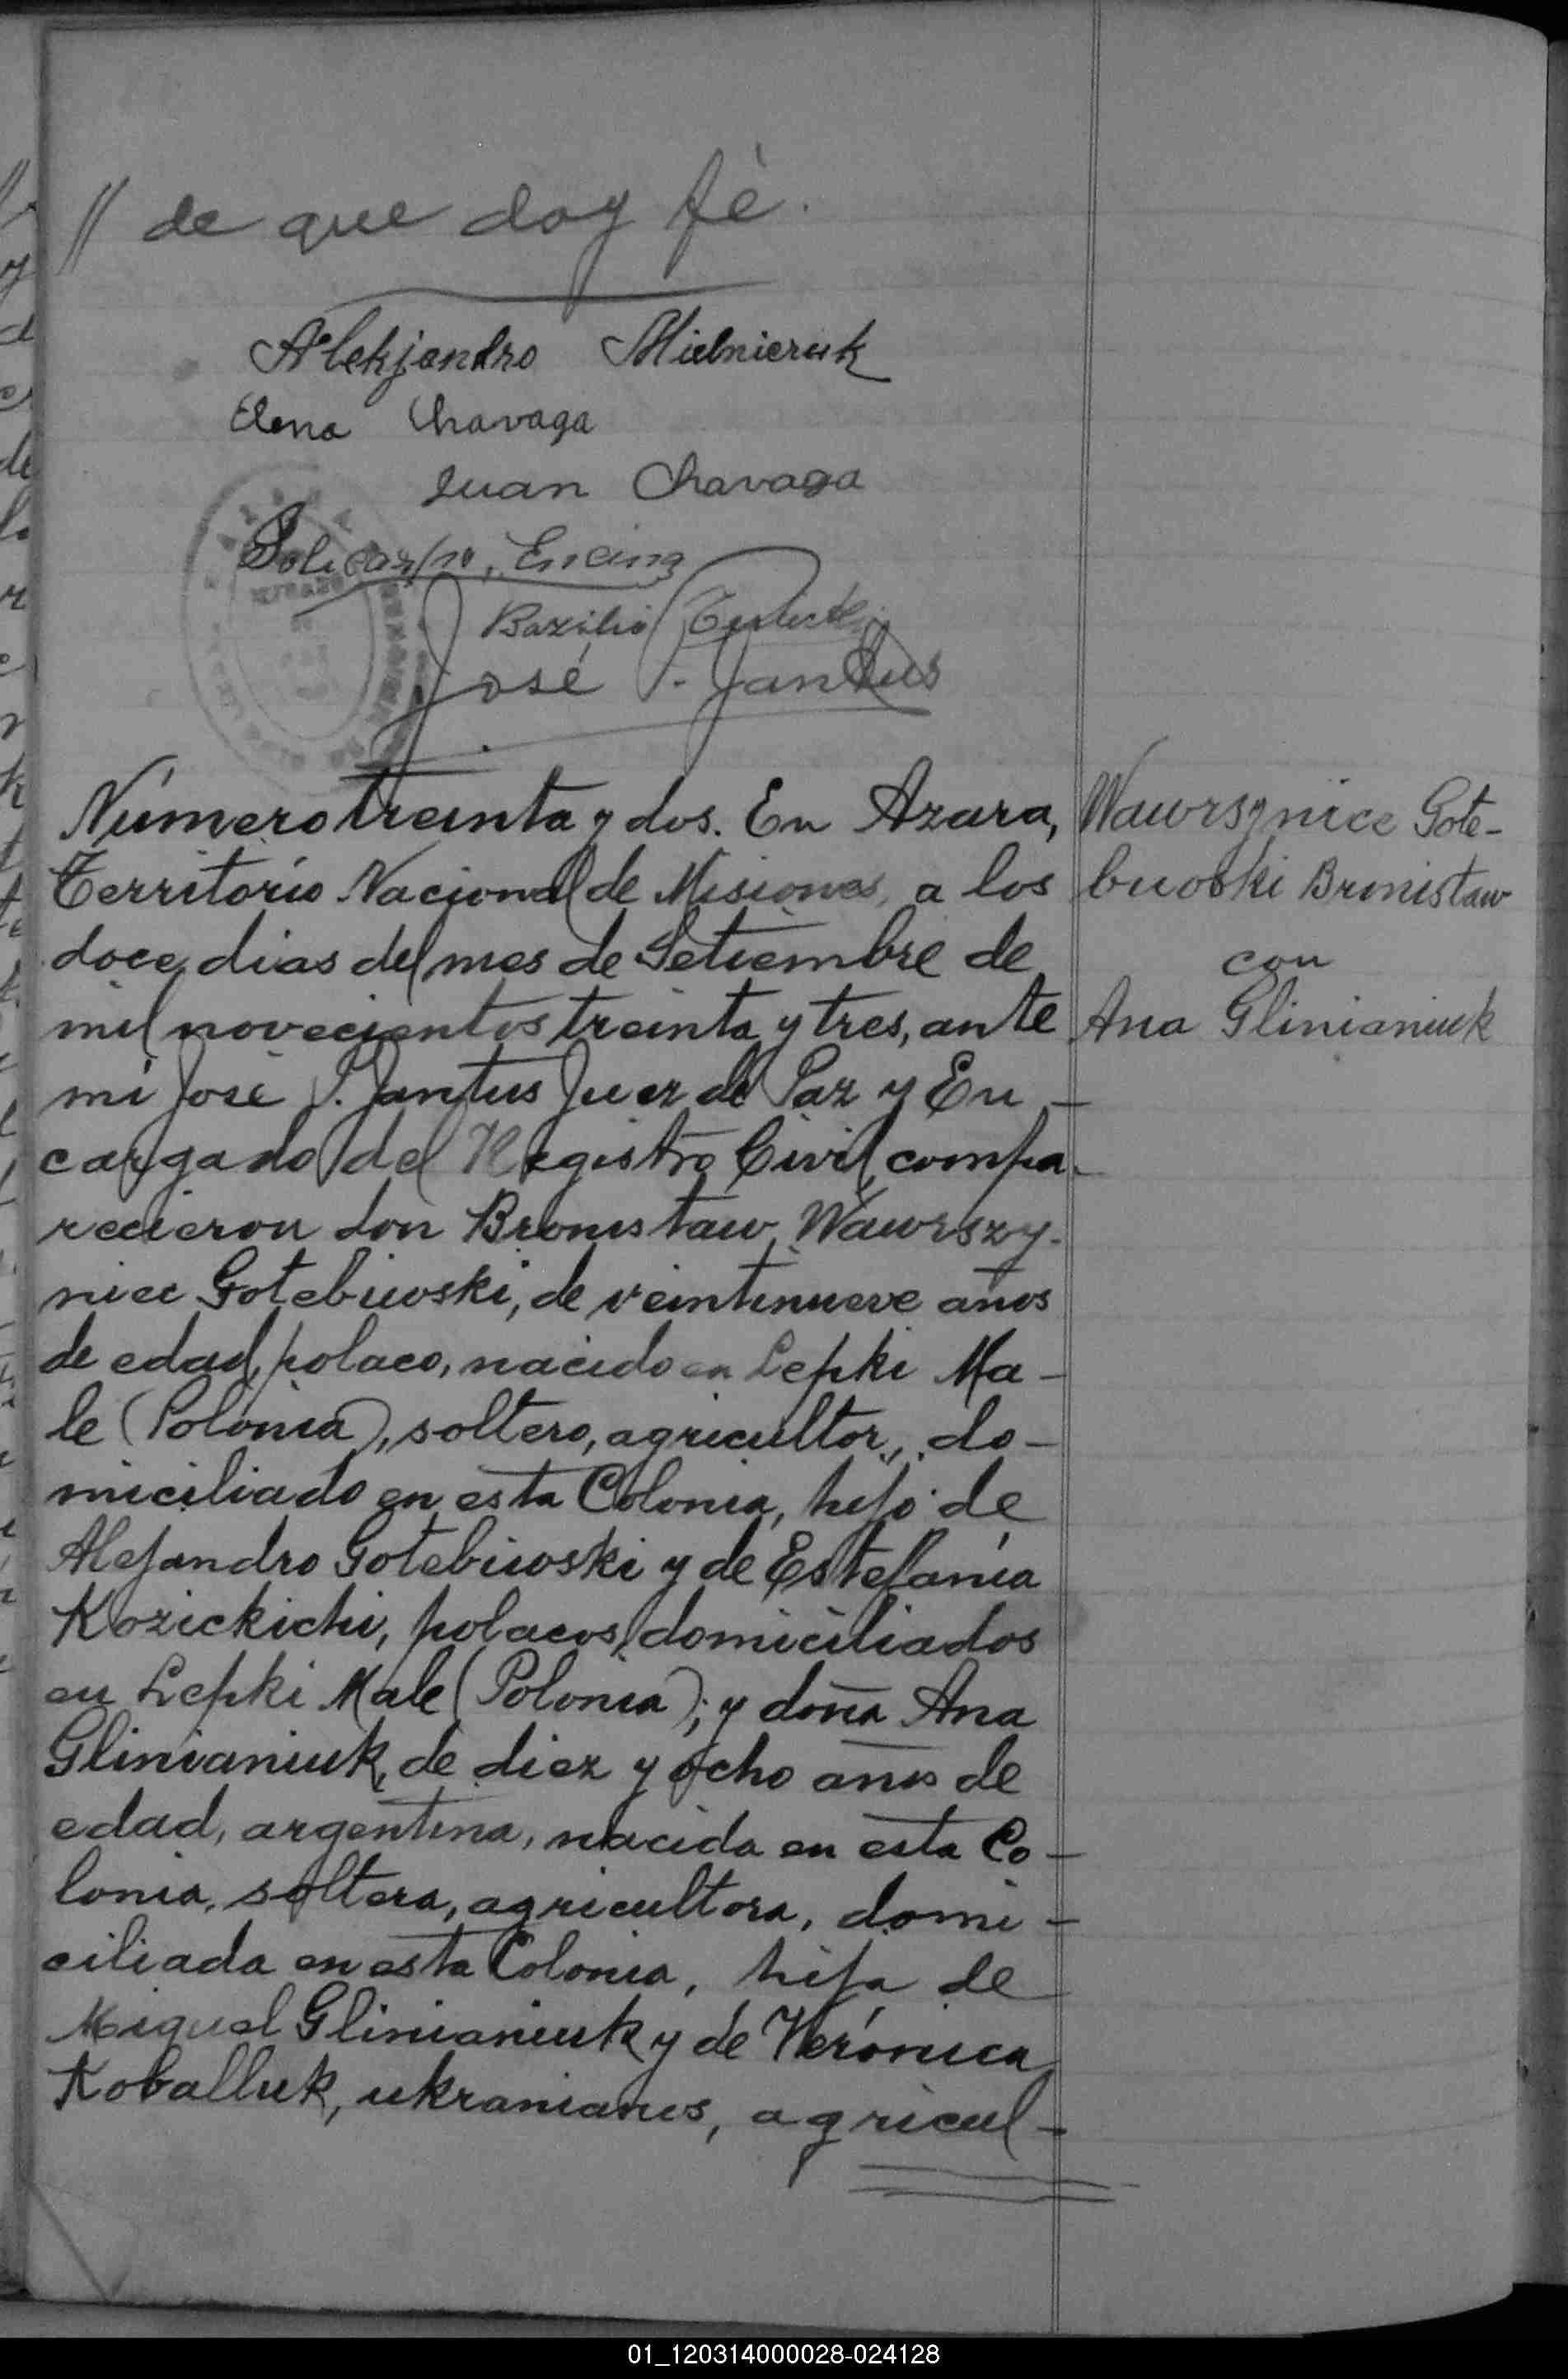 // de que doy fé.
Alekjandro Mielnieruk
Elena Chavaga
Juan Chavaga
Policarpo, Encina
Bazilio
José P. Jantus
Número treinta y dos. En Azara,
Territorio Nacional de Misiones, a los
doce dias del mes de Setiembre de
mil novecientos treinta y tres, ante
mi José P. Jantus Juez de Paz y En -
cargado del Registro Civil, compa-
recieron don Bronistaw Wawrszy-
niec Gotebiwoski, de veintinueve años
de edad, polaco, nacido en Lepki Ma -
le (Polonia), soltero, agricultor, do -
miciliado en esta Colonia, hijo de
Alejandro Gotebiwoski y de Estefanía
Kozickichi, polacos, domiciliados
en Lepki Male (Polonia); y doña Ana
Glinianiuk, de diez y ocho anos de
edad, argentina, nacida en esta Co -
lonia, soltera, agricultora, domi -
ciliada en esta Colonia, hija de
Miguel Glinianiuk y de Verónica
Koballuk, ukranianos, agricul -
Wawrsznice Gote-
buoski Bronistaw
con
Ana Glinianiuk
01_120314000028-024128